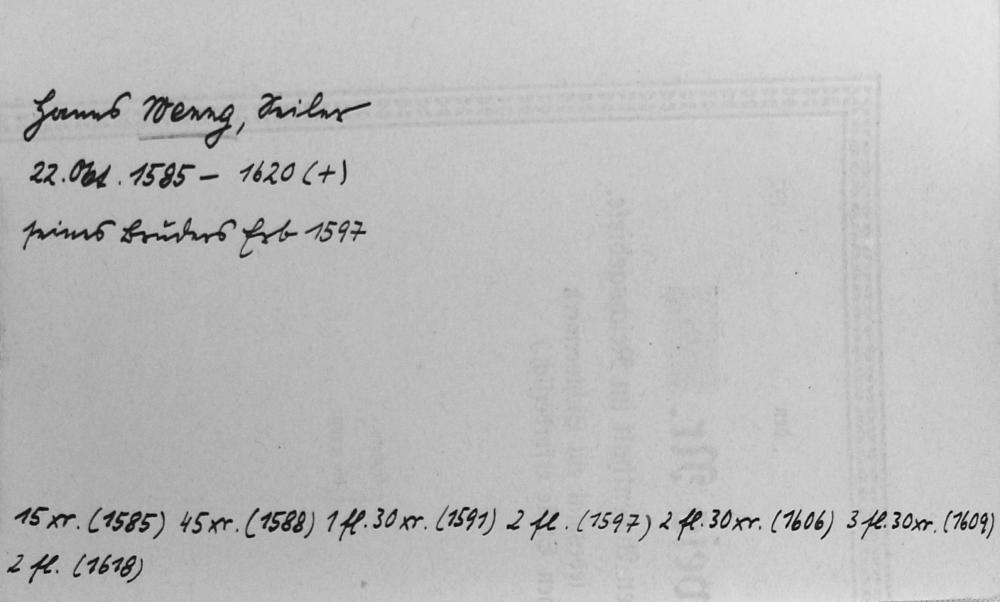 Hanns Wenng, Seiler
22. Okt. 1585 – 1620 (+)
seines Bruders Erb 1597
15 xr. (1585) 45 xr. (1588) 1 fl. 30 xr. (1591) 2 fl. (1597) 2 fl. 30 xr. (1606) 3 fl. 30 xr. (1609)
2 fl. (1618)